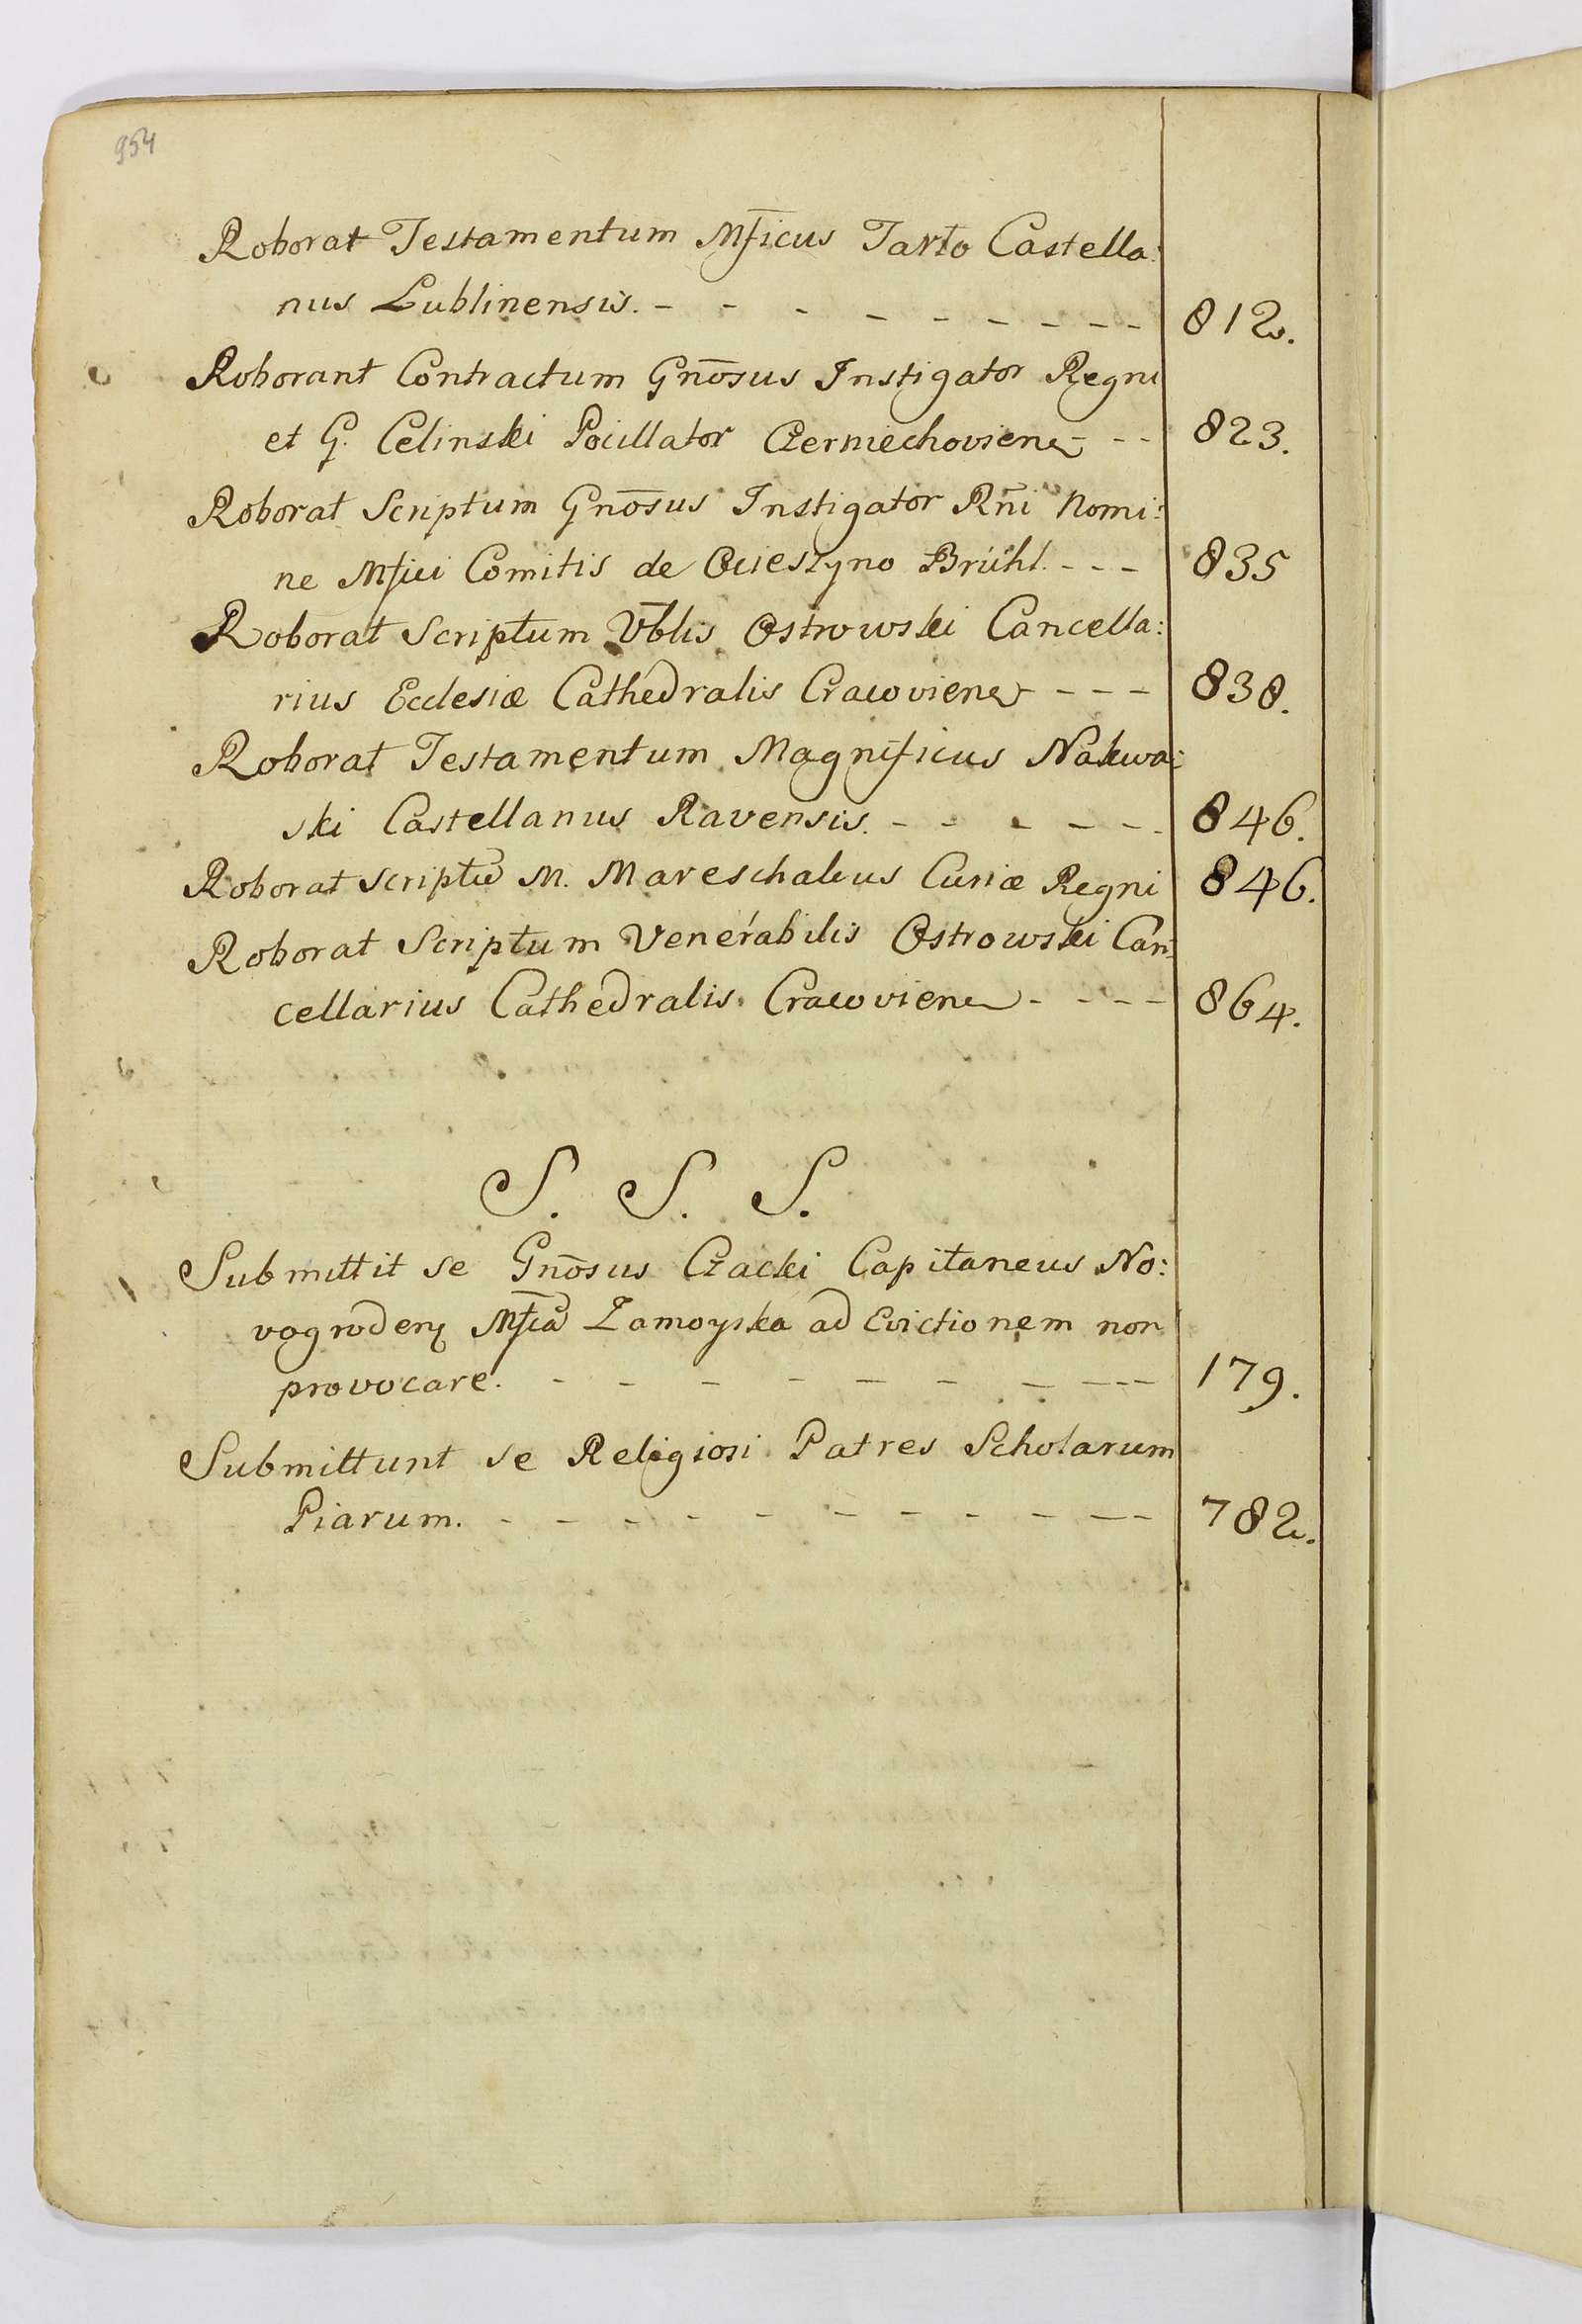 954
Roborat Testamentum Mficus Tarło Castella:
nus Lublinensis. - - - - - - - - 812.
Roborant Contractum Gnōsus Instigator Regni
et G. Celinski Pocillator Czerniechoviens - - - 823.
Roborat Scriptum Gnōsus Instigator Rñi Nomi:
ne Mfici Comitis de Ociestzyno Brühl. - - - 835
Roborat Scriptum Vblis Ostrowski Cancella:
rius Ecclesiæ Cathedralis Cracoviens - - - 838.
Roborat Testamentum Magnificus Nakwa:
ski Castellanus Ravensis. - - - - - - 846.
Roborat scriptū M. Mareschalcus Curiæ Regni 846.
Roborat Scriptum Venerabilis Ostrowski Can:
cellarius Cathedralis Cracoviens - - - - 864.
S. S. S.
Submittit se Gnōsus Czacki Capitaneus No:
vogrodens Mfca Zamoyska ad Evictionem non
provocare. - - - - - - - - - - - 179.
Submittunt se Religiosi Patres Scholarum
Piarum. - - - - - - - - - - - 782.